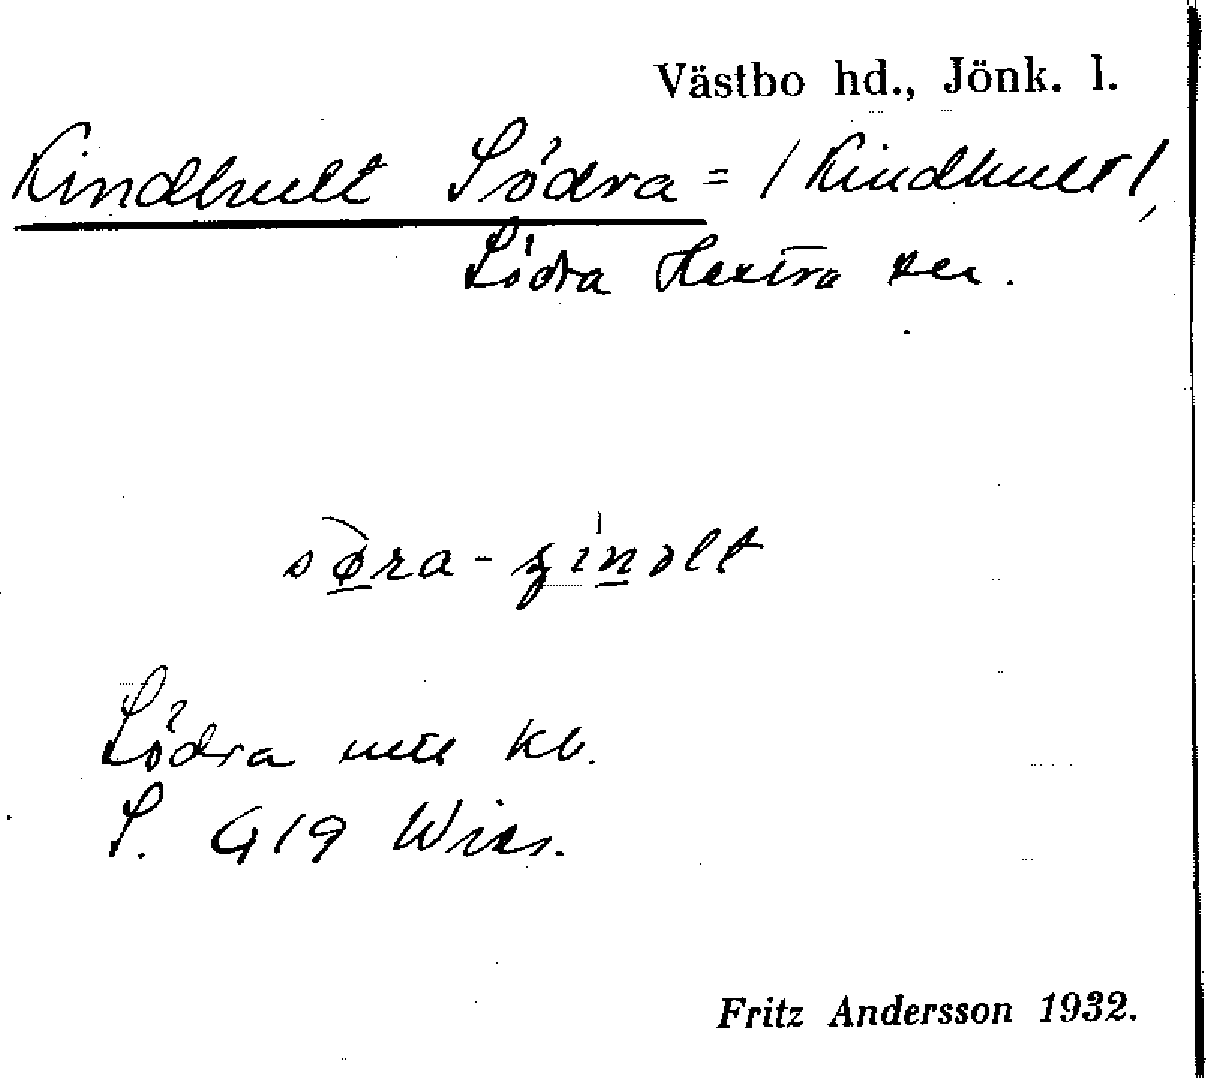 Västbo hd., Jönk. l.
Kindhult Södra = / Kindhult /,
Södra Hestra sn.
Södra utti Kb.
S. 419 Wies.
Fritz Andersson 1932.